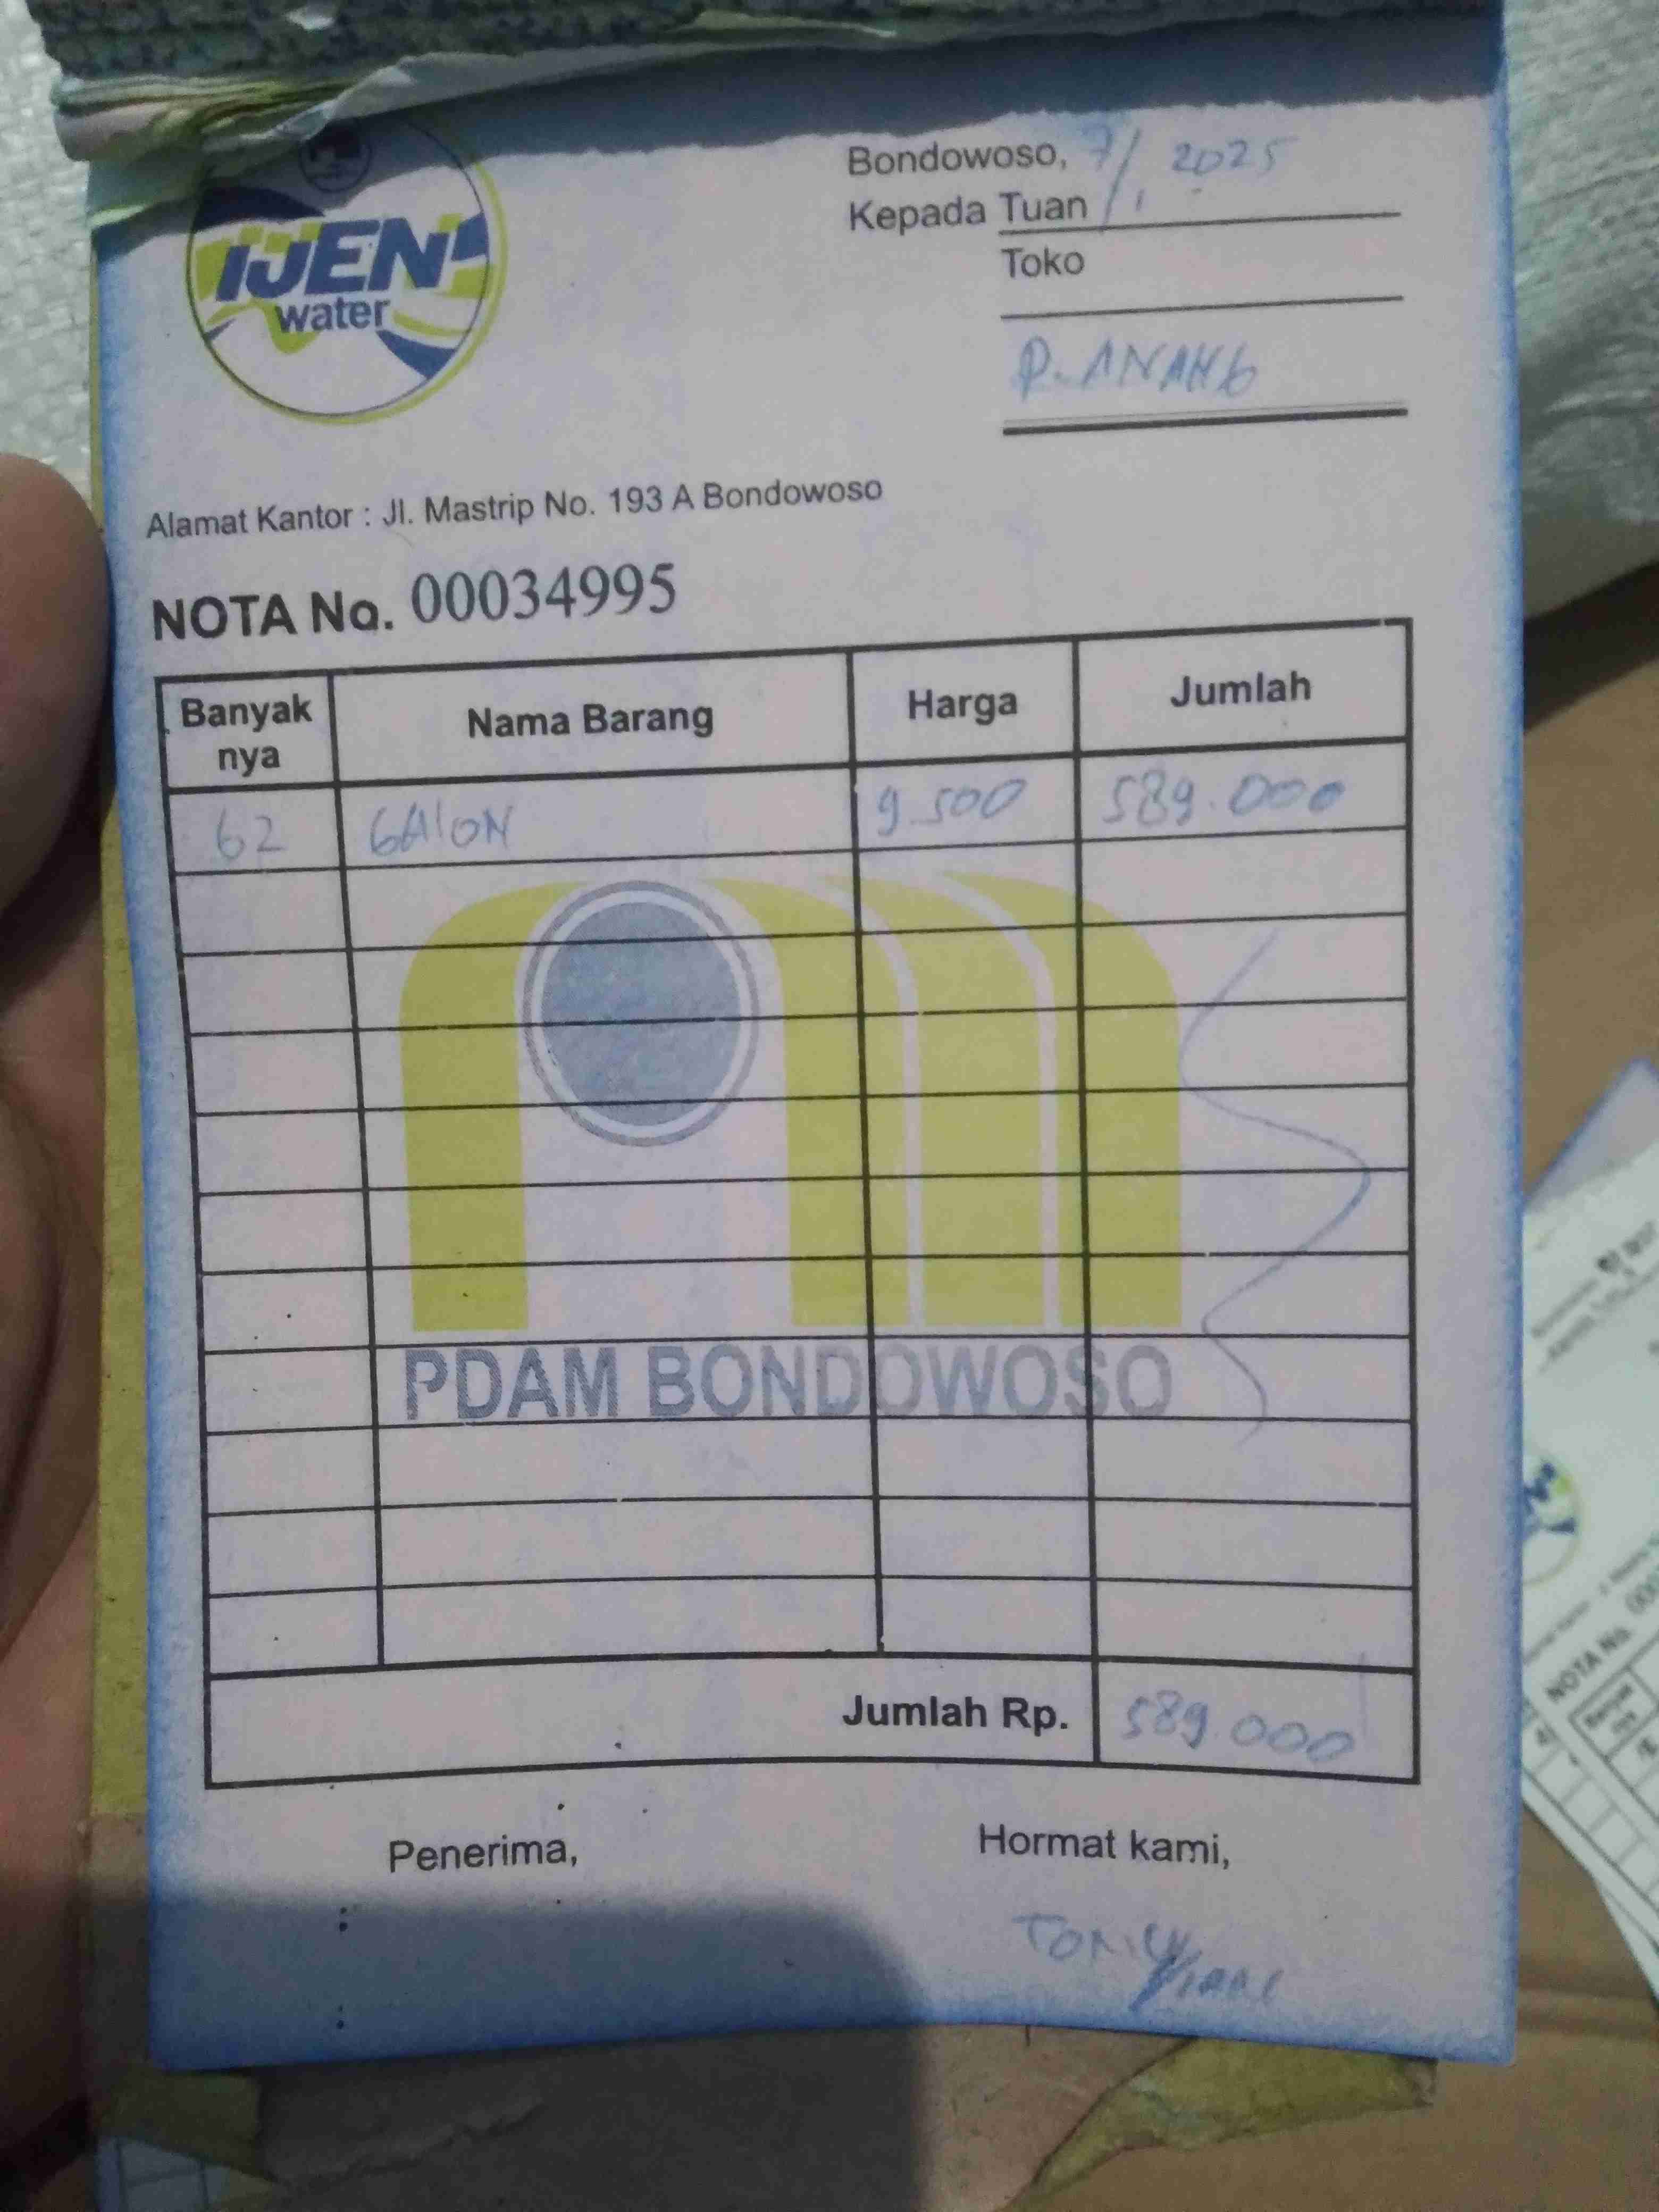 IJEN
water
Bondowoso, 7/1 2025
Kepada Tuan
Toko
P. ANANG
Alamat Kantor : Jl. Mastrip No. 193 A Bondowoso
NOTA No. 00034995
Banyak nya Nama Barang Harga Jumlah
62 GAlON 9.500 589.000
PDAM BONDOWOSO
Jumlah Rp. 589.000
Penerima, Hormat kami,
NOTA No.